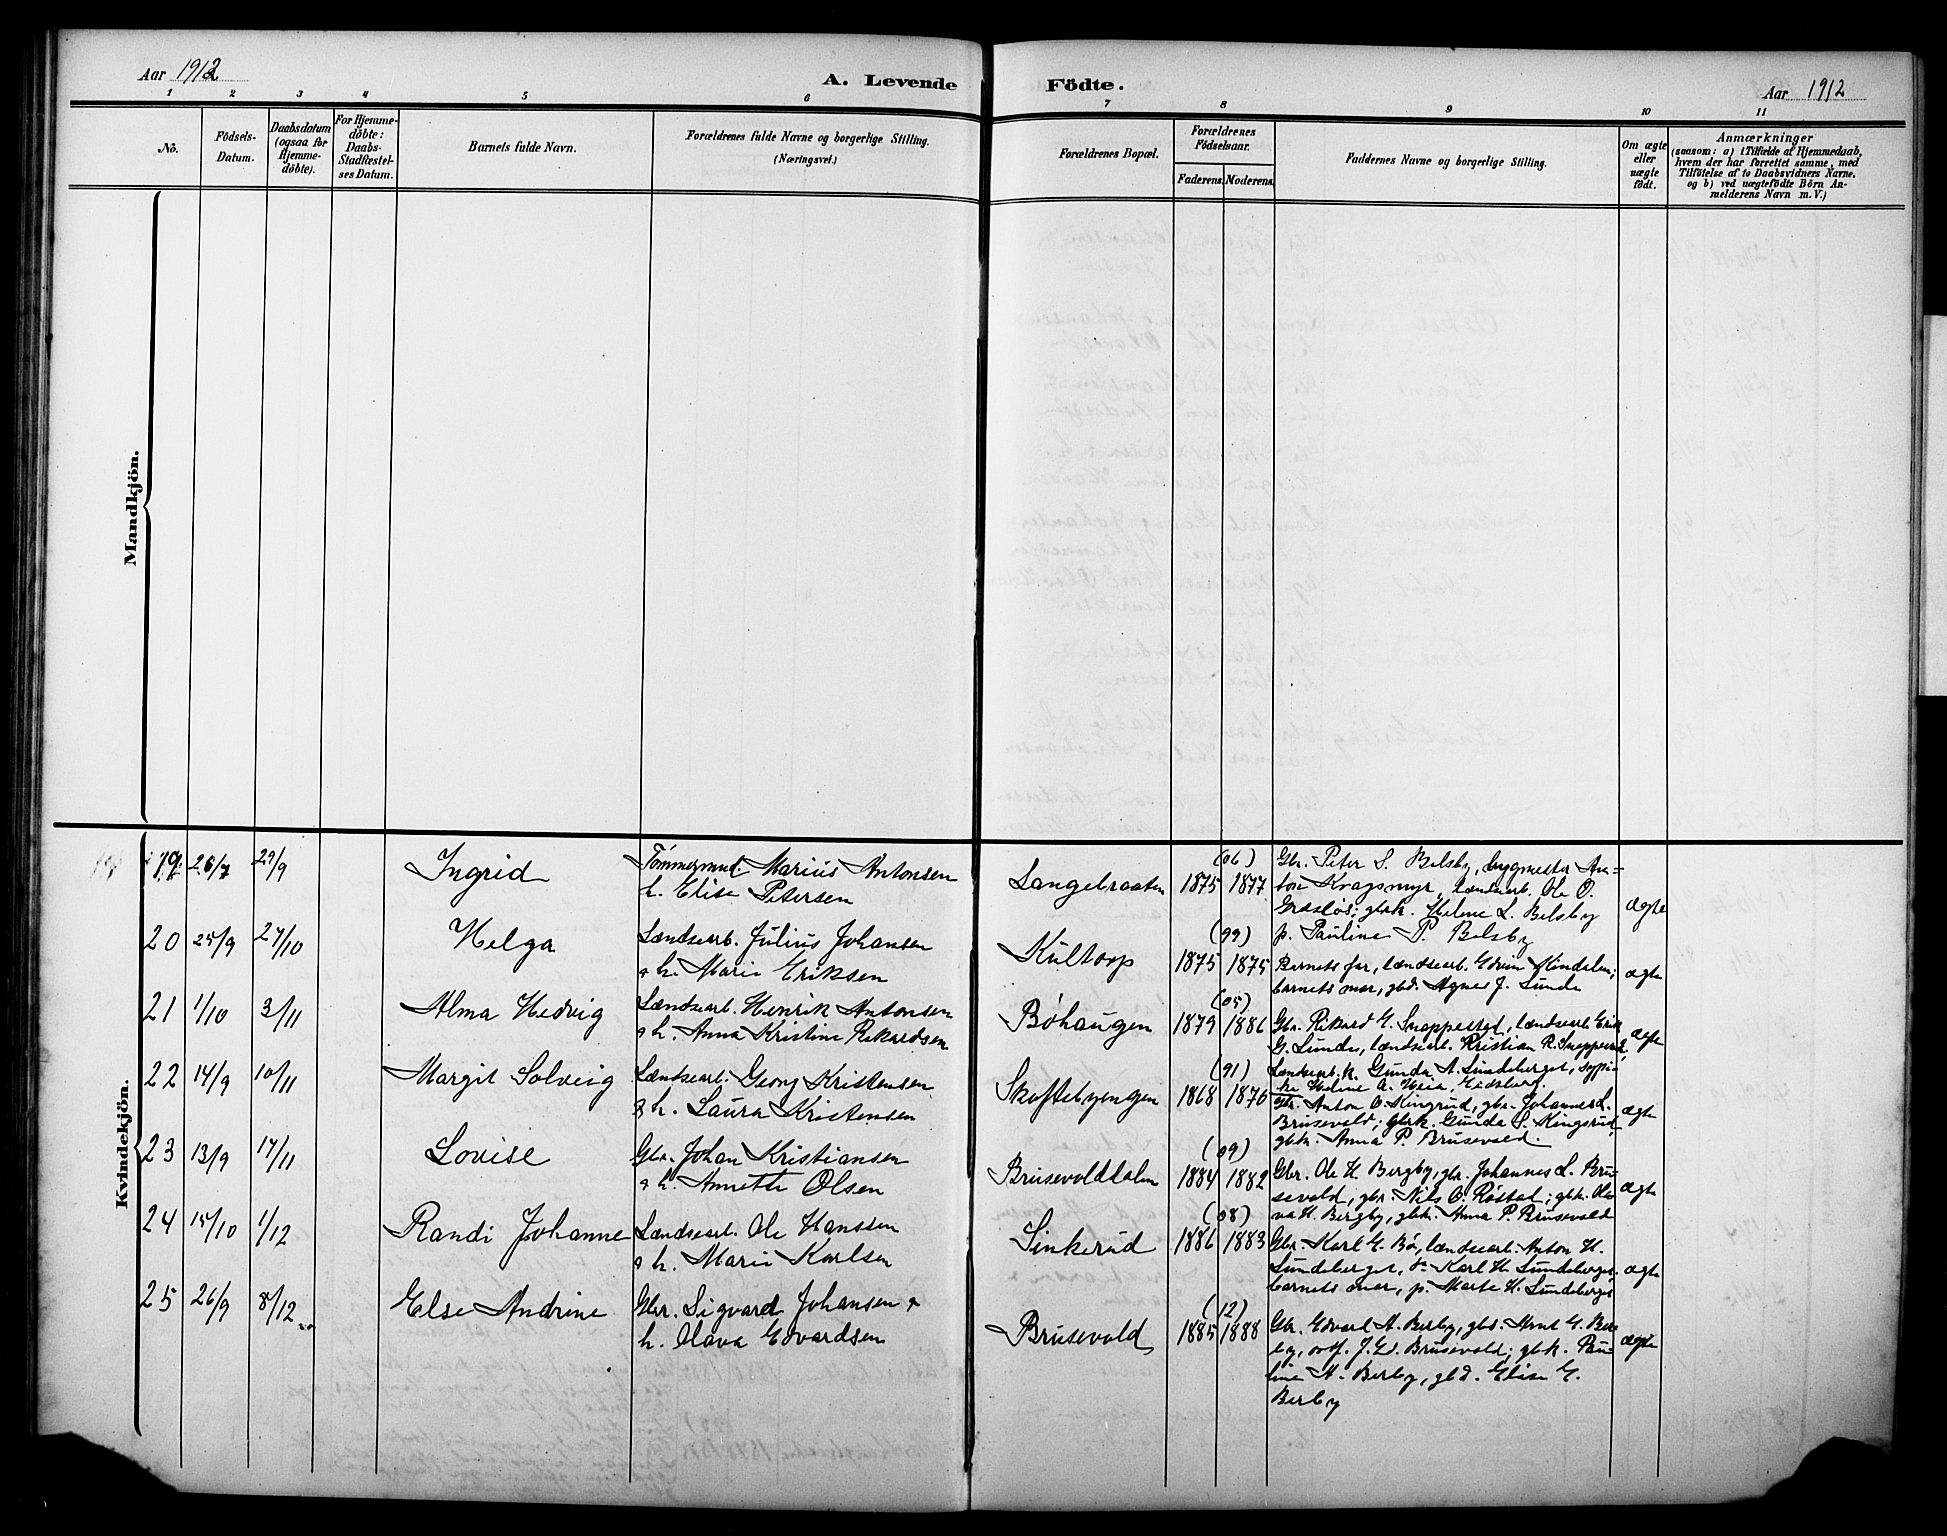 Aar 1912
A. Levende
Födte.
Aar 1912
1 2 3 4 5 6 7 8 9 10 11
No.
Födsels-
Datum.
Daabsdatum
(ogsaa for
Hjemme-
döbte).
For Hjemme-
döbte:
Daabs-
Stadfæstel-
ses Datum.
Barnets fulde Navn.
Forældrenes fulde Navne og borgerlige Stilling.
(Næringsvei.)
Forældrenes Bopæl.
Forældrenes
Födselsaar.
Faderens. Moderens.
Faddernes Navne og borgerlige Stilling.
Om ægte
eller
uægte
födt.
Anmærkninger
(saasom: a) i Tilfælde af Hjemmedaab,
hvem der har forrettet samme, med
Tilföielse af to Daabsvidners Navne,
og b) ved uægtefödte Börn An-
melderens Navn m. V.)
Mandkjön.
Kvindekjön.
19. 26/7 29/9 Ingrid
Tömmermd. Marius Antonsen
h. Elise Petersen
Langebraaten (06) 1875 1877
Gbr. Peter S. Belsby, bygmester An=
ton Kragsmyr, landsarb. Ole O.
Grasløs; gbrk. Helene L. Belsby
p. Pauline P. Belsby
ægte
20 25/9 27/10 Helga
Landsearb. Julius Johansen
& h. Marie Eriksen
Kultorp (99) 1875 1875
Barnets far, landsearb. Edvin Mindalen;
barnets mor, gbd. Agnes J. Lunde
ægte
21 1/10 3/11 Alma Hedvig
Landsearb. Henrik Antonsen
& h. Anna Kristine Rikardsen
Bøhaugen (05) 1879 1886
Gbr. Rikard E. Snoppestad, landsearb Erik
G. Lunde, landsearb. Kristian R.
Landsearb.k. Gunda A. Lundeberget,
Heline A. Heia, Eidsberg.
ægte
22 14/9 10/11 Margit Solveig
Landsearb. Georg Kristensen
& h. Laura Kristensen
Skoftebyengen (91) 1868 1870
Gbr. Anton O. Kingsrud, gbr. Johannes L.
Brusevold; gbrk. Gunda S. Kingsrud,
gbk. Anna P. Brusevold.
ægte
23 13/9 17/11 Lovise
Gbr. Johan Kristiansen
& h. Annette Olsen
Brusevolddalen (09) 1884 1882
Gbr. Ole H. Bergby, gbr. Johannes L. Bru=
sevold, gbr. Nils O. Røstad; gbk. Ole=
va H. Bergby, gbk. Anna P. Brusevold
ægte
24 15/10 1/12 Randi Johanne
Landsearb. Ole Hansen
& h. Marie Karlsen
Sinkerud (08) 1886 1883
Gbr. Karl E. Bø, landsearb. Anton H.
Lundeberget, Karl H. Lundeberget,
barnets mor, p. Marte H. Lundeberget
ægte
25 26/9 8/12 Else Andrine
Gbr. Sigvard Johansen &
h. Olava Edvardsen
Brusevold (12) 1885 1888
Gbr. Edvard A. Berby, gbs. Arnt E. Ber=
by, J. Ed. Brusevold; gbk. Pau=
line A. Berby, gbd. Elise E.
Berby
ægte